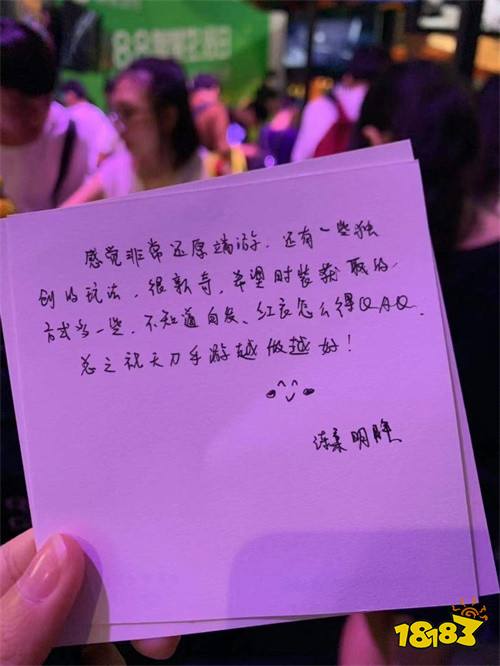 感觉非常还原端游.还有一些独
创的玩法,很新奇,希望时装获取的
方式多一些,不知道白发、红衣怎么得QAQ.
总之祝天刀手游越做越好!
18183